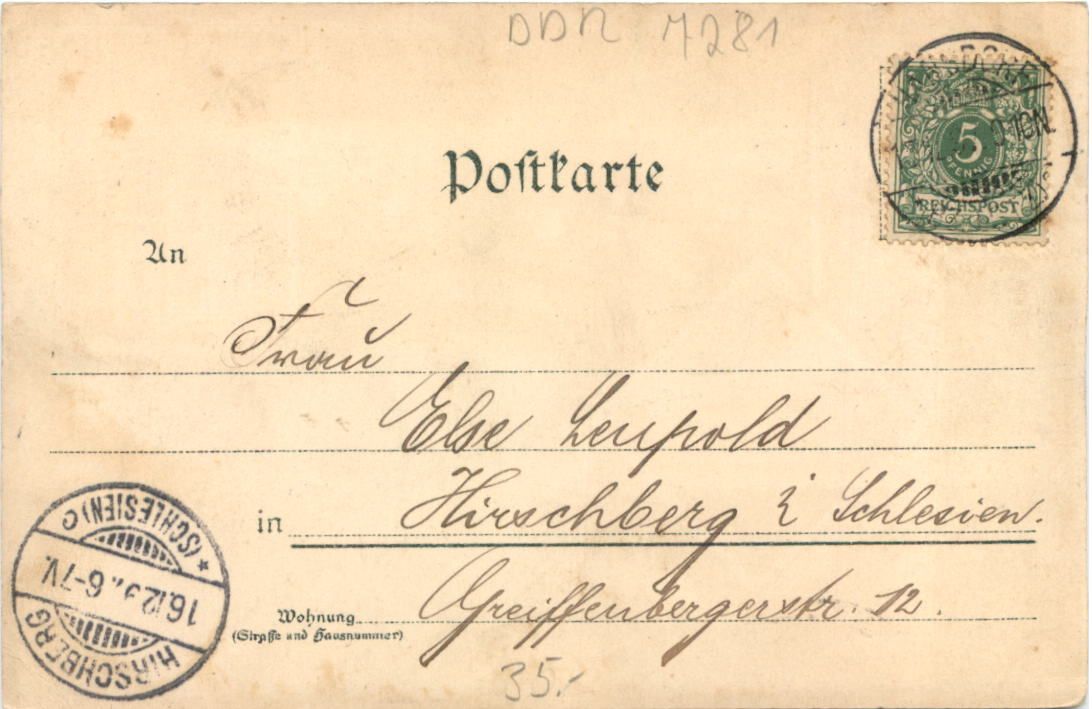 DDR 7281
Postkarte
5
PFENNIG
REICHSPOST
10N.
An
Frau
Else Leupold
in Hirschberg i Schlesien.
Wohnung
(Straße und Hausnummer)
Greiffenbergerstr. 12.
HIRSCHBERG
16.12.9 6-7V.
* (SCHLESIEN) C
35.-